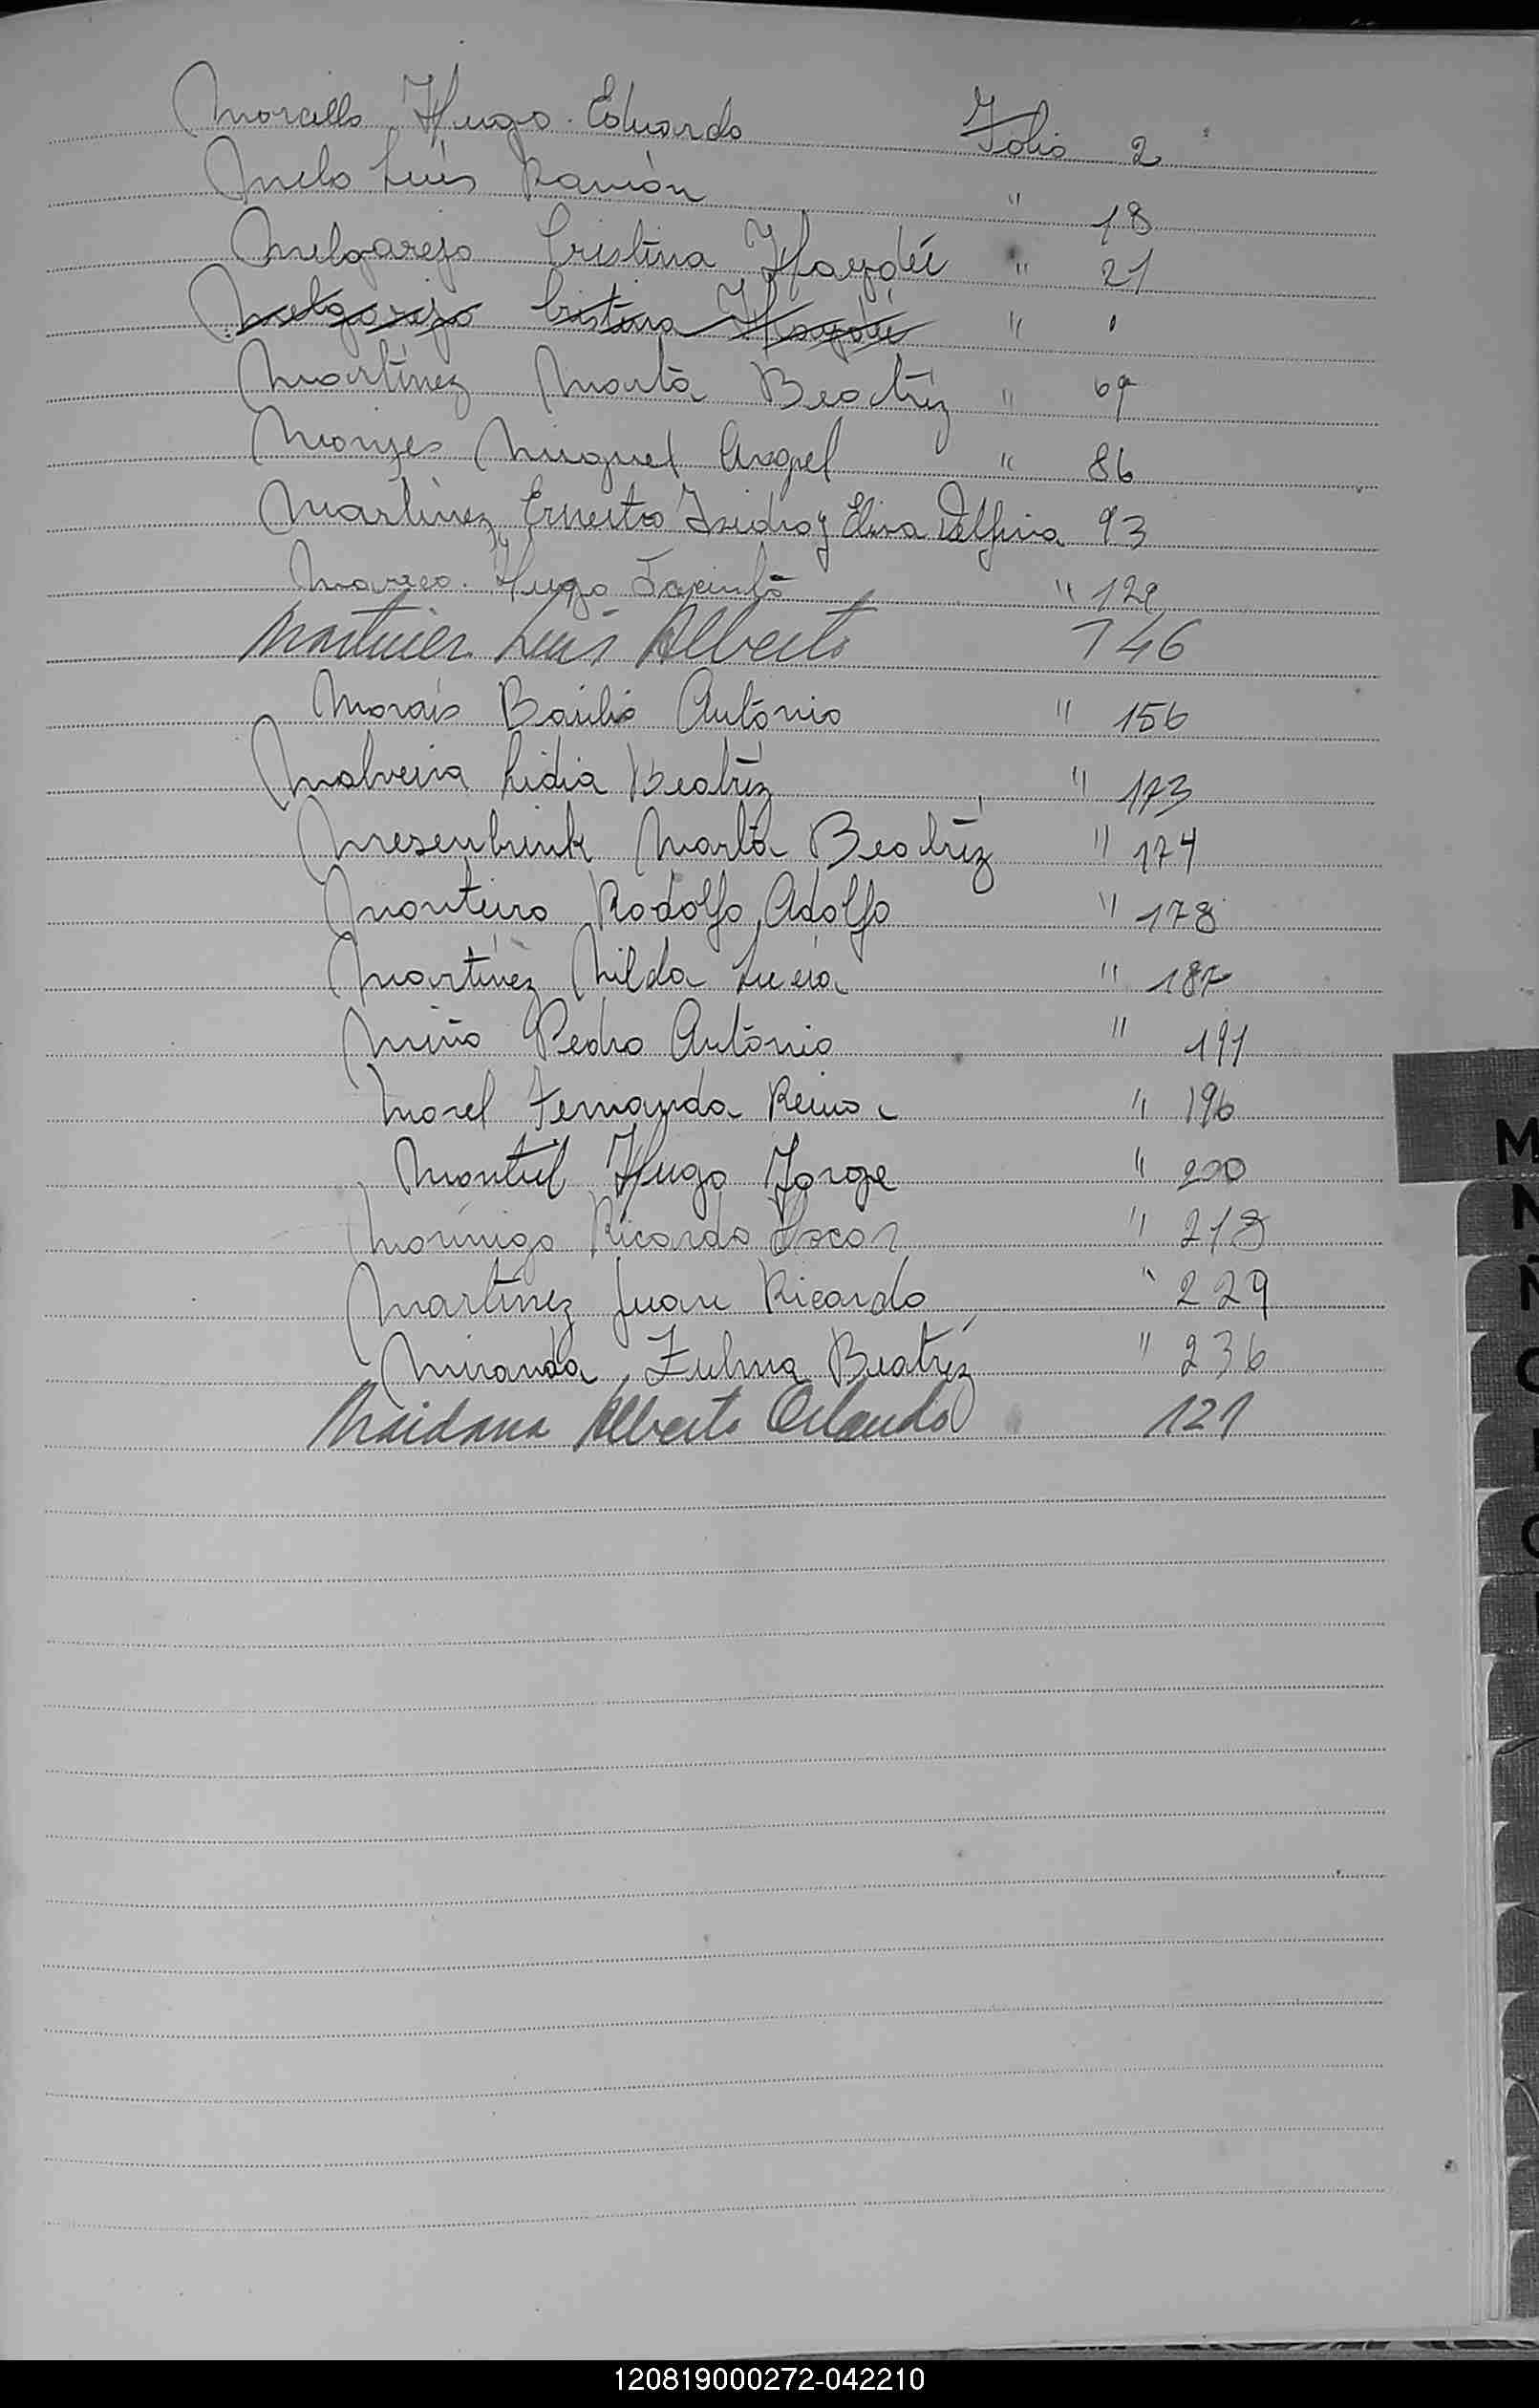 Morcello Hugo Eduardo Folio 2
Melo Luis Ramón " 18
Melgarejo Cristina Haydeé " 21
Melgarejo Cristina Haydeé " "
Martínez Marta Beatríz " 69
Monges Miguel Angel " 86
Martinez Ernesto Isidro y Elisa Delfina 93
Hugo Jacinto " 129
Martinez Luis Alberto 146
Morais Basilio Antonio " 156
Malveira Lidia Beatríz " 173
Mesenbrink Marta Beatríz " 174
Monteiro Rodolfo Adolfo " 178
Martínez Nilda Lucia " 187
Miño Pedro Antonio " 191
Morel Fernanda " 196
Montiel Hugo Jorge " 200
Morinigo Ricardo Oscar " 218
Martínez Juan Ricardo " 229
Miranda Zulma Beatríz " 236
Maidana Alberto Orlando 121
M
N
Ñ
O
120819000272-042210